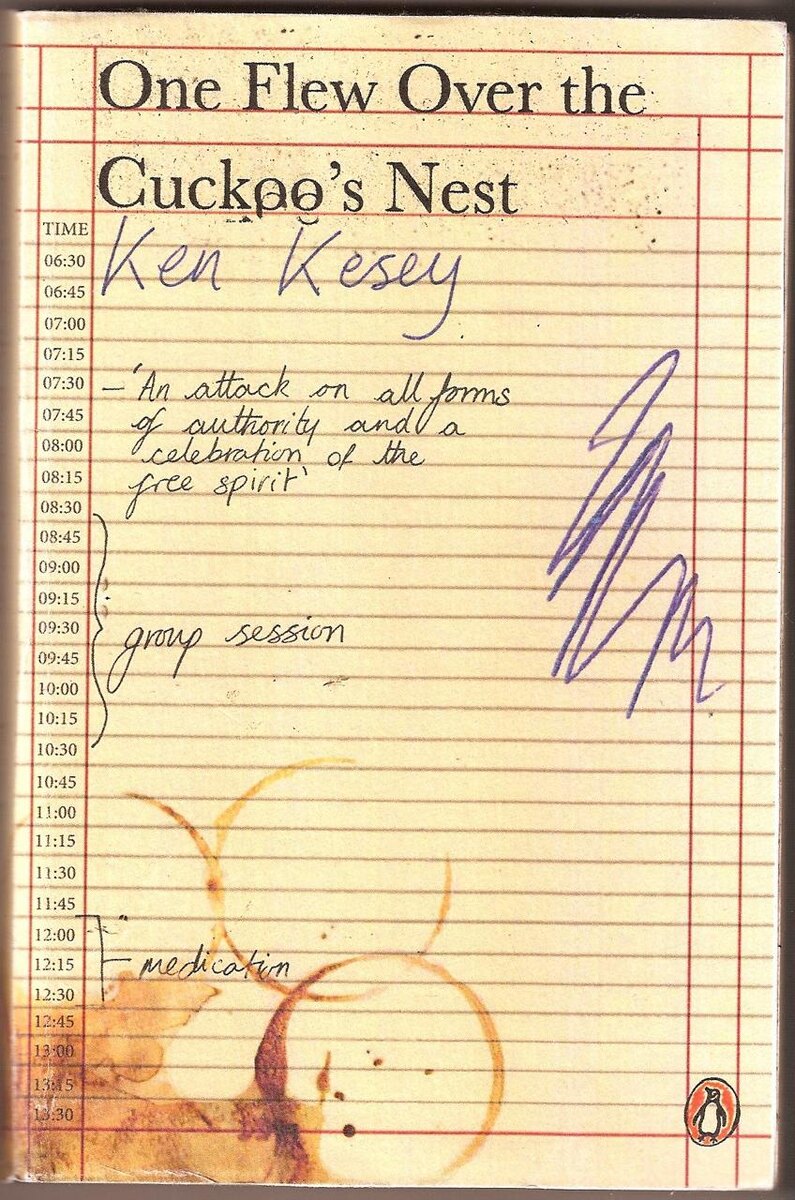 One Flew Over the
Cuckoo's Nest
TIME
Ken Kesey
06:30
06:45
07:00
07:15
07:30
– 'An attack on all forms
07:45
of authority and a
08:00
celebration of the
08:15
free spirit'
08:30
08:45
09:00
09:15
09:30
group session
09:45
10:00
10:15
10:30
10:45
11:00
11:15
11:30
11:45
12:00
12:15
medication
12:30
12:45
13:00
13:15
13:30